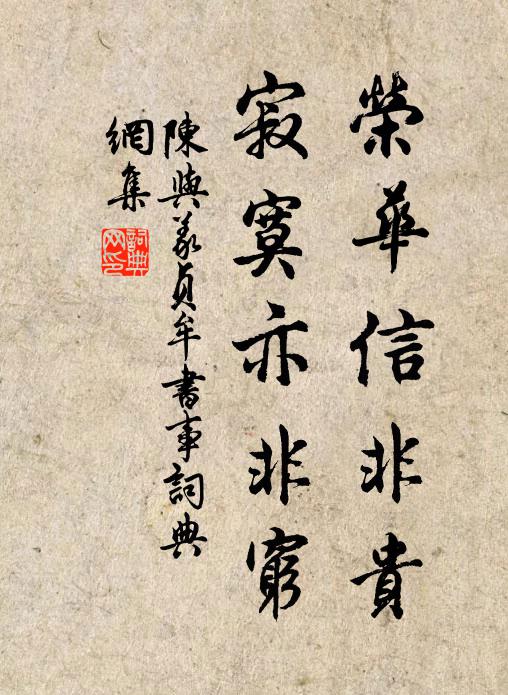 榮華信非貴
寂寞亦非窮
陳與義貞牟書事詞典
網集
詞典網印